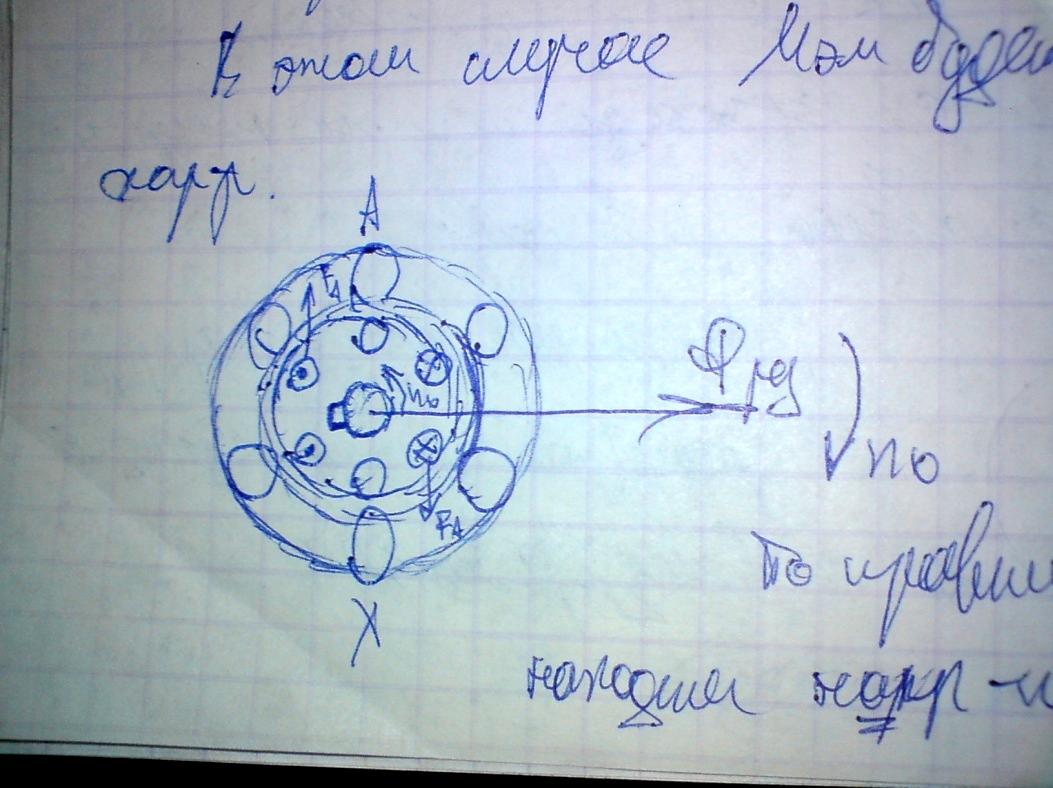 В этом случае Мэм будет
хар-р.
A
FA
n₀
Фрд
n₀
FA
По правил
X
находим напр-и